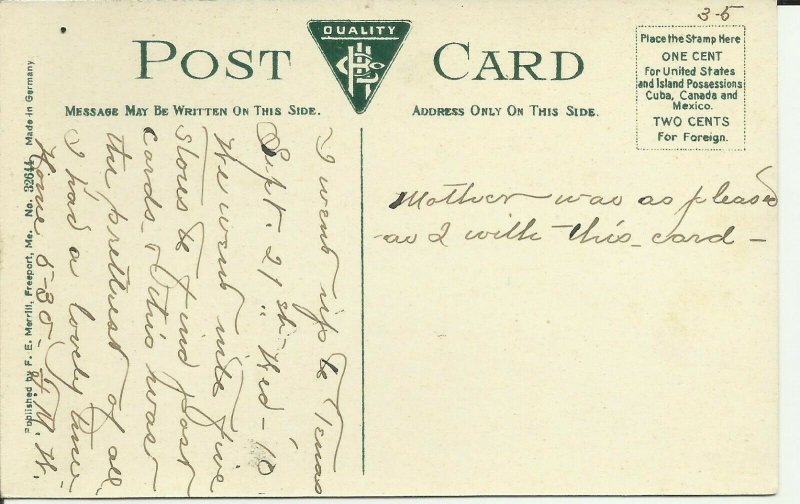 3-5
QUALITY
POST CARD
MESSAGE MAY BE WRITTEN ON THIS SIDE.
ADDRESS ONLY ON THIS SIDE.
Place the Stamp Here
ONE CENT
For United States
and Island Possessions
Cuba, Canada and
Mexico.
TWO CENTS
For Foreign.
Published by F. E. Merrill, Freeport, Me. No. 32644 Made in Germany
I went up to
Sept. 21st. Wed-'10
We went into five
stores to find post
cards- & this was
the prettiest of all
I had a lovely time
Home 5-30-
Mother was as pleased
as I with this card-